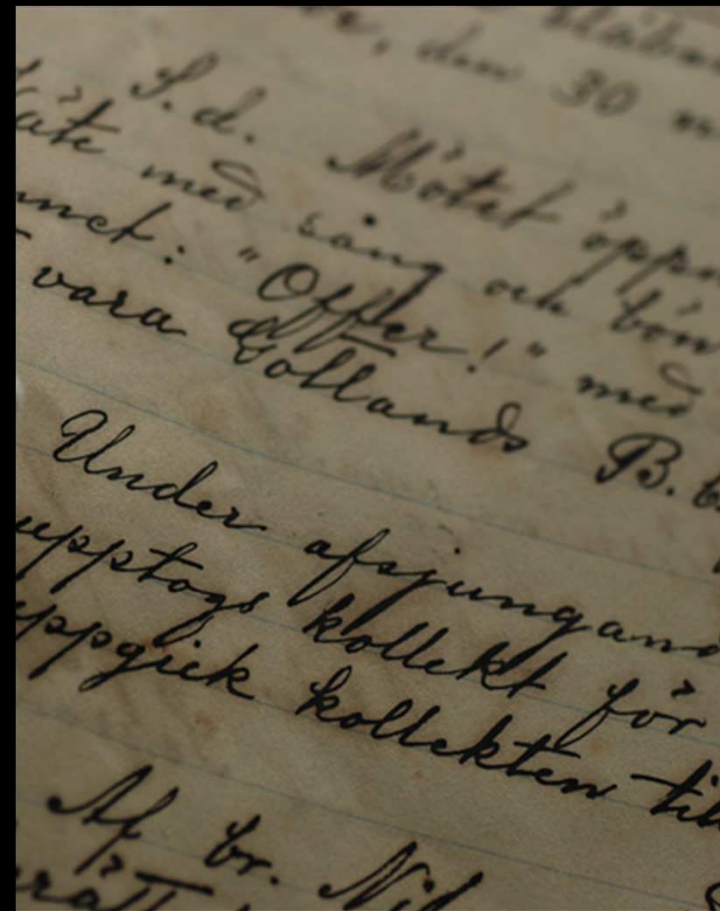 den 30
S. d. Mötet öppn
med sång och bön
"Offer!" med
vara Gotlands B.
Under afsjungand
upptogs kollekt för
uppgick kollekten till
Af br. Nil